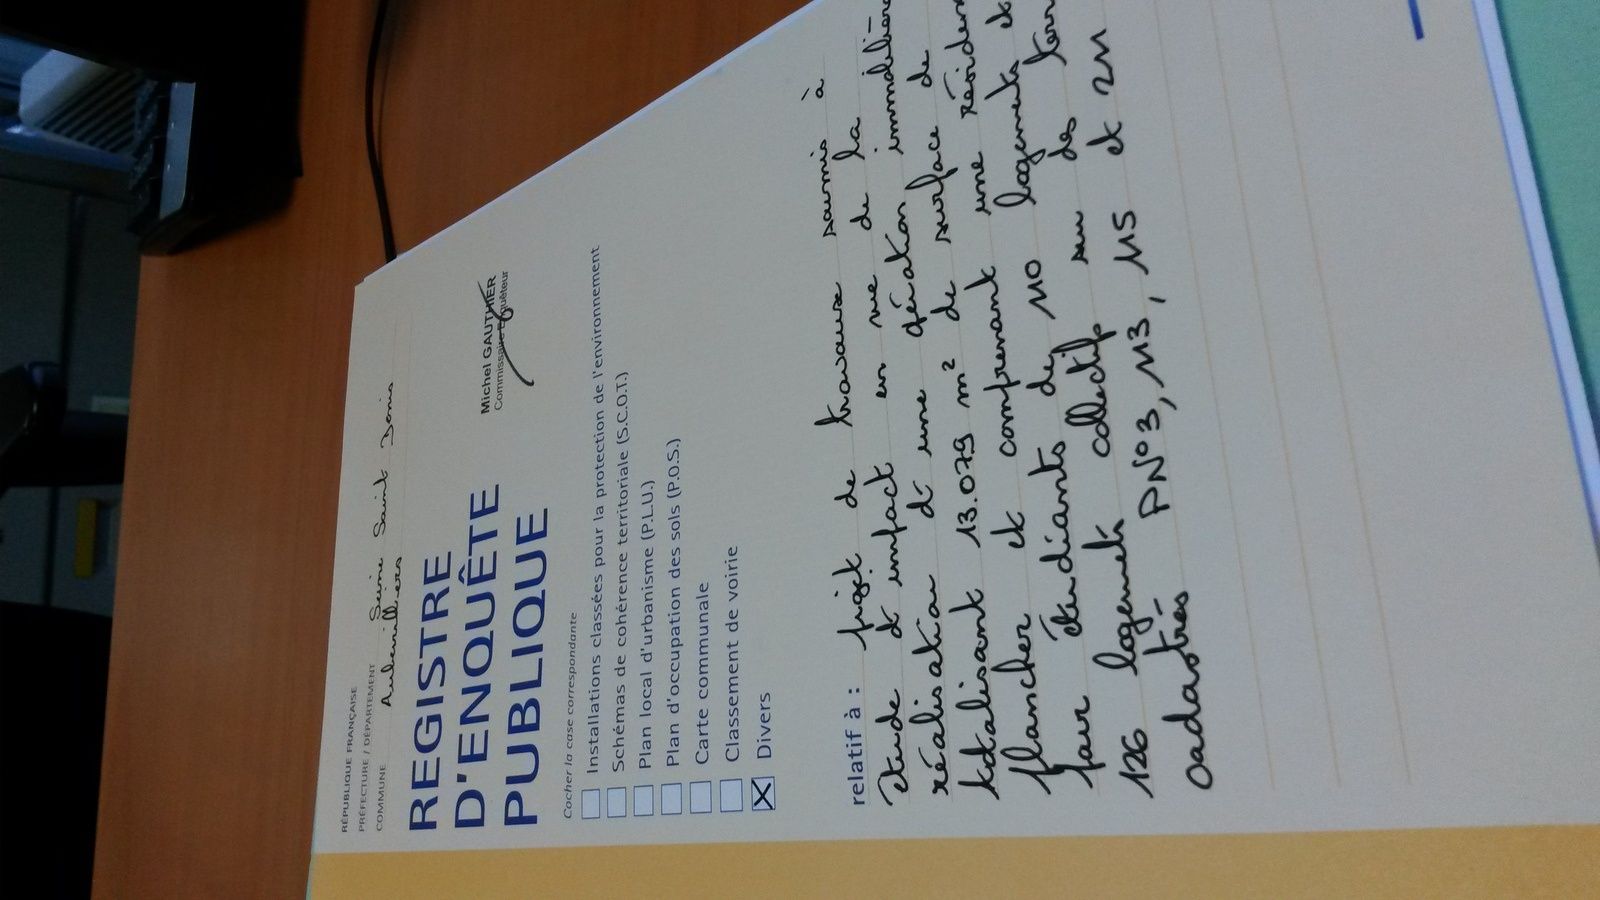 RÉPUBLIQUE FRANÇAISE
PRÉFECTURE / DÉPARTEMENT Seine Saint Denis
COMMUNE Aubervilliers
REGISTRE
D'ENQUÊTE
PUBLIQUE
Michel GAUTHIER
Commissaire Enquêteur
Cocher la case correspondante
Installations classées pour la protection de l'environnement
Schémas de cohérence territoriale (S.C.O.T.)
Plan local d'urbanisme (P.L.U.)
Plan d'occupation des sols (P.O.S.)
Carte communale
Classement de voirie
Divers
relatif à : projet de travaux soumis à
étude d'impact en vue de la
réalisation d'une opération immobilière
totalisant 13.079 m² de surface de
plancher et comprenant une résidence
pour étudiants de 110 logements et
126 logements collectifs sur des
cadastrés PN°3, 113, 115 et 211